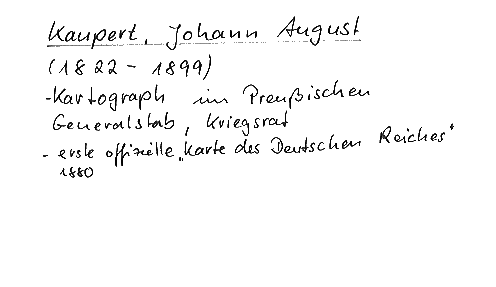 Kaupert, Johann August
(1822 - 1899)
-Kartograph im Preußischen
Generalstab, Kriegsrat
- erste offizielle „Karte des Deutschen Reiches"
1880